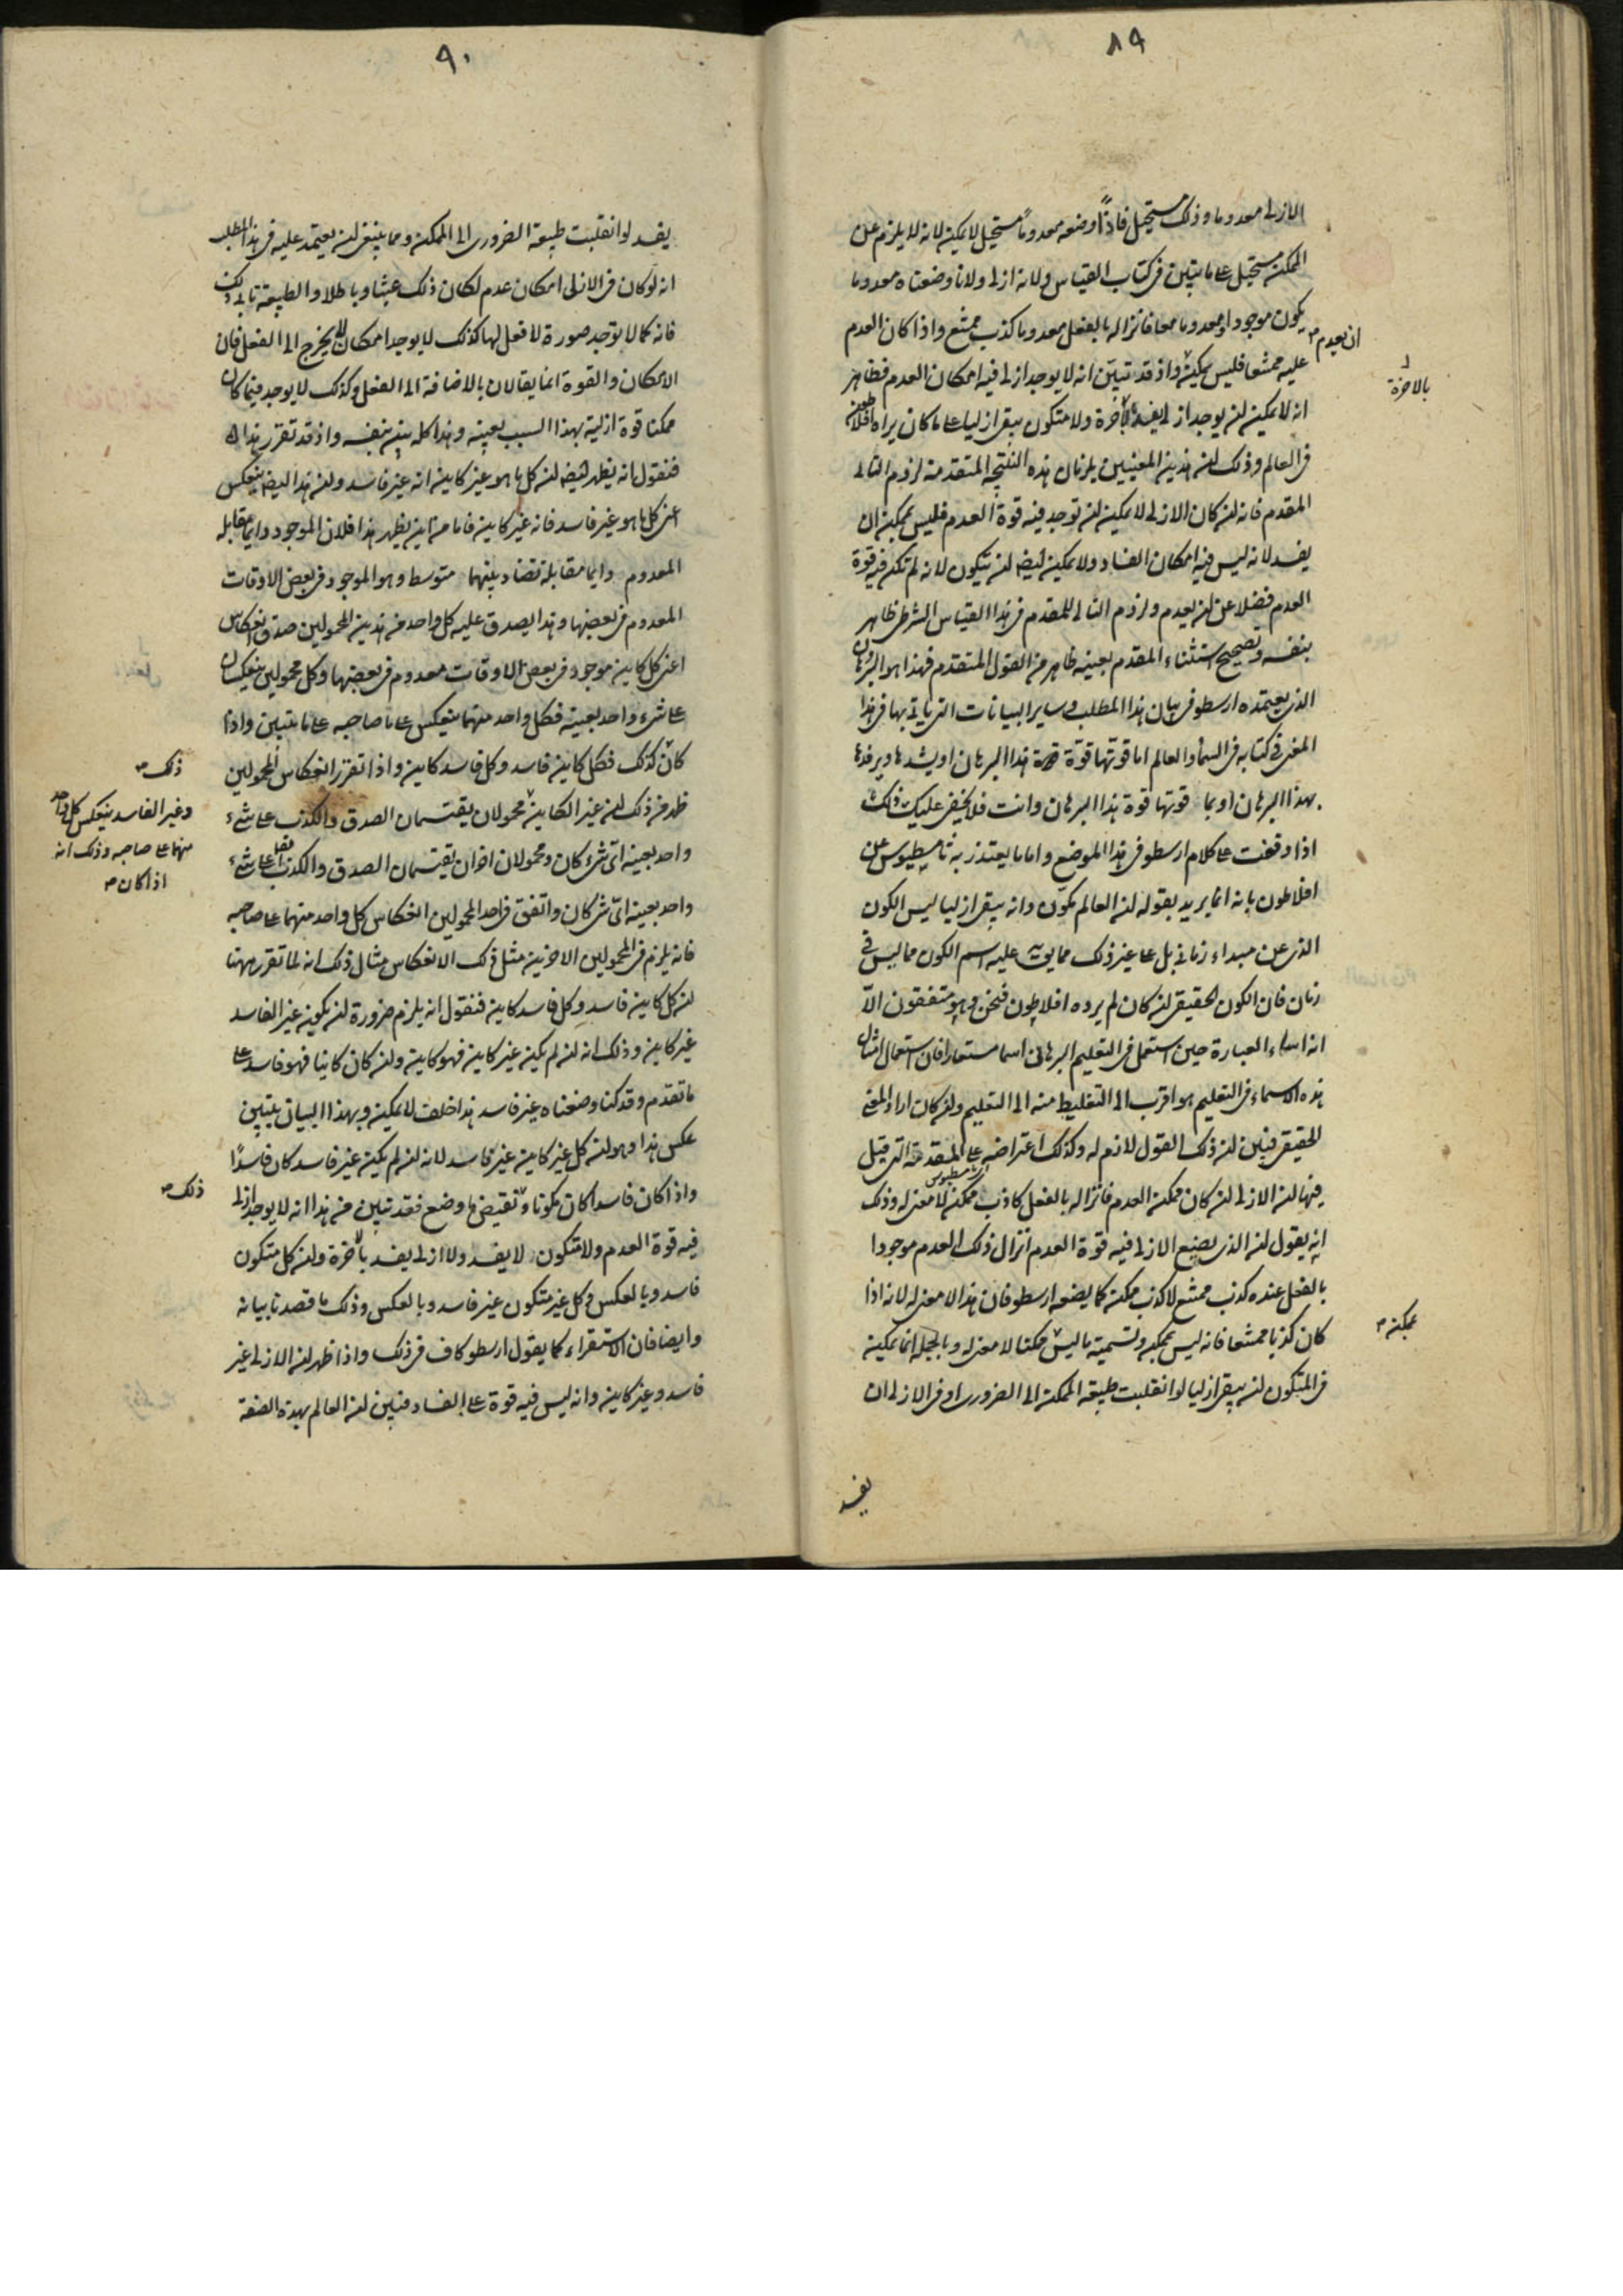 ٨٩
الازلى معدوما وذلك مستحيل فاذًا وضعه معدومًا مستحيل لا يمكن لانه لا يلزم عن
الممكن مستحيل على ما يتبين فى كتاب القياس ولانه ازلى ولانا وضعناه معدوما
يكون موجودا ومعدوما معا فانزاله بالفعل معدوما كذب ممتنع واذا كان العدم
ان يعدم
عليه ممتنعا فليس يمكن واذ قد تبيّن انه لا يوجد ازلى فيه امكان العدم فظاهر
بالاخرة
انه لا يمكن ان يوجد ازلى يفسد بأخرة ولا متكون يبقى ازليا على ما كان يراه افلاطون
فى العالم وذلك ان هذين المعنيين يلزمان هذه النتيجة المتقدمة لزوم التالى
المقدم فانه ان كان الازلى لا يمكن ان توجد فيه قوة العدم فليس يمكن ان
يفسد لانه ليس فيه امكان الفساد ولا يمكن ايضا ان يتكون لانه لم تكن فيه قوة
العدم فضلا عن ان يعدم ولزوم التالى للمقدم فى هذا القياس الشرطى ظاهر
بنفسه وتصحيح استثناء المقدم بعينه ظاهر من القول المتقدم فهذا هو البرهان
الذى يعتمده ارسطو فى بيان هذا المطلب وساير البيانات التى ياتى بها فى هذا
المعنى فى كتابه فى السماء والعالم اما قوتها قوة هذا البرهان او يشدها ويرفدها
بهذا البرهان او بما قوتها قوة هذا البرهان وانت فلا يخفى عليك ذلك
اذا وقفت على كلام ارسطو فى هذا الموضع واما ما يعتذر به ثامسطيوس عن
افلاطون بانه انما يريد بقوله ان العالم يكوّن وانه يبقى ازليا ليس الكون
الذى عن مبداء زمانى بل على غير ذلك مما يق عليه اسم الكون مما ليس فى
زمان فان الكون الحقيقى ان كان لم يرده افلاطون فنحن وهو متفقون الّا
انه اساء العبارة حين استعمل فى التعليم البرهانى اسما مستعارا فان استعمال امثال
هذه الاسماء فى التعليم هو اقرب الى التغليط منه الى التعليم وان كان اراد المعنى
الحقيقى فبين ان ذلك القول لازم له وكذلك اعتراضه على المقدمة التى قيل
ثامسطيوس
فيها ان الازلى ان كان ممكن العدم فانزاله بالفعل كاذب ممكن لا معنى له وذلك
انه يقول ان الذى يضع الازلى فيه قوة العدم انزال ذلك العدم موجودا
بالفعل عنده كذب ممتنع لا كذب ممكن كما يضعه ارسطو فان هذا لا معنى له لانه اذا
كان كذبا ممتنعا فانه ليس يمكن وتسمية ما ليس ممكنا لا معنى له وبالجملة انما يمكن
بممكن
فى المتكون ان يبقى ازليا لو انقلبت طبيعة الممكن الى الضرورى او فى الازلى ان
يفسد
٩٠
يفسد لو انقلبت طبيعة الضرورى الى الممكن ومما ينبغى ان يعتمد عليه فى هذا المطلب
انه لو كان فى الازلى امكان عدم لكان ذلك عبثا وباطلا والطبيعة تابى ذلك
فانه كما لا توجد صورة لا فعل لها كذلك لا يوجد امكان لا يخرج الى الفعل فان
الامكان والقوة انما يقالان بالاضافة الى الفعل وكذلك لا يوجد فيما كان
ممكنا قوة ازلية بهذا السبب بعينه وهذا كله بين بنفسه واذ قد تقرر هذا
فنقول انه يظهر ايضا ان كل ما هو غير كاين انه غير فاسد وان هذا ايضا ينعكس
اعنى كل ما هو غير فاسد فانه غير كاين فاما من اين يظهر هذا فلان الموجود دايما مقابله
المعدوم دايما مقابلة تضاد بينهما متوسط وهو الموجود فى بعض الاوقات
المعدوم فى بعضها وهذا يصدق عليه كل واحد من هذين المحمولين صدق انعكاس
اعنى كل كاين موجود فى بعض الاوقات معدوم فى بعضها وكل محمولين ينعكسان
على شىء واحد بعينه فكل واحد منهما ينعكس على صاحبه على ما يتبين واذا
كان كذلك فكل كاين فاسد وكل فاسد كاين واذا تقرر انعكاس المحمولين
ذلك
ظهر من ذلك ان غير الكاين محمولان يقتسمان الصدق والكذب على شىء
وغير الفاسد ينعكس كل واحد
منهما على صاحبه وذلك انه
اذا كان
واحد بعينه اى شىء كان ومحمولان اخران يقتسمان الصدق والكذب ايضا على شىء
واحد بعينه اى شىء كان واتفق فى احد المحمولين انعكاس كل واحد منهما على صاحبه
فانه يلزم فى المحمولين الاخرين مثل ذلك الانعكاس مثال ذلك انه لما تقرر ههنا
ان كل كاين فاسد وكل فاسد كاين فنقول انه يلزم ضرورة ان يكون غير الفاسد
غير كاين وذلك انه ان لم يكن غير كاين فهو كاين وان كان كاينا فهو فاسد على
ما تقدم وقد كنا وضعناه غير فاسد هذا خلف لا يمكن وبهذا البيان يتبين
عكس هذا وهو ان كل غير كاين غير فاسد لانه ان لم يكن غير فاسد كان فاسدًا
واذا كان فاسدا كان مكونا ونقيض ما وضع فقد تبين من هذا انه لا يوجد ازلى
ذلك
فيه قوة العدم ولا متكون لا يفسد ولا ازلى يفسد بأخرة وان كل متكون
فاسد وبالعكس وكل غير متكون غير فاسد وبالعكس وذلك ما قصدنا بيانه
وايضا فان الاستقراء كما يقول ارسطو كاف فى ذلك واذا ظهر ان الازلى غير
فاسد وغير كاين وانه ليس فيه قوة على الفساد فبين ان العالم بهذه الصفة